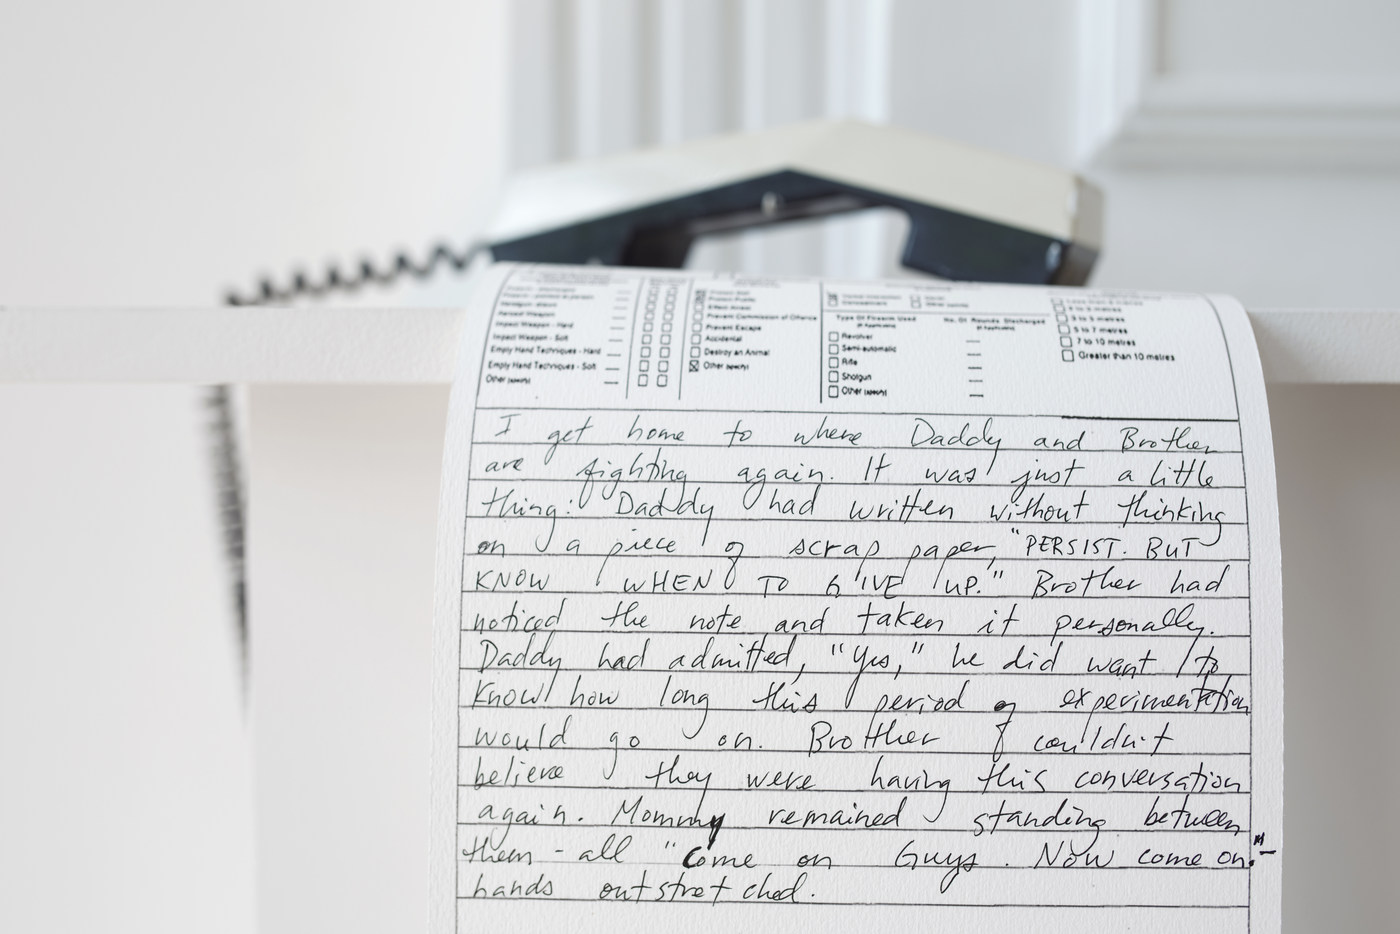 Handgun - drawn
Aerosol Weapon
Impact Weapon - Hard
Impact Weapon - Soft
Empty Hand Techniques - Hard
Empty Hand Techniques - Soft
Other (specify)
Protect Self
Protect Public
Effect Arrest
Prevent Commission of Offence
Prevent Escape
Accidental
Destroy an Animal
Other (specify)
Type Of Firearm Used
(if applicable)
No. Of Rounds Discharged
(if applicable)
Revolver
Semi-automatic
Rifle
Shotgun
Other (specify)
2 to 3 metres
3 to 5 metres
5 to 7 metres
7 to 10 metres
Greater than 10 metres
I get home to where Daddy and Brother
are fighting again. It was just a little
thing: Daddy had written without thinking
on a piece of scrap paper, "PERSIST. BUT
KNOW WHEN TO GIVE UP." Brother had
noticed the note and taken it personally.
Daddy had admitted, "Yes," he did want to
know how long this period of experimentation
would go on. Brother couldn't
believe they were having this conversation
again. Mommy remained standing between
them - all "Come on Guys. Now come on." -
hands outstretched.